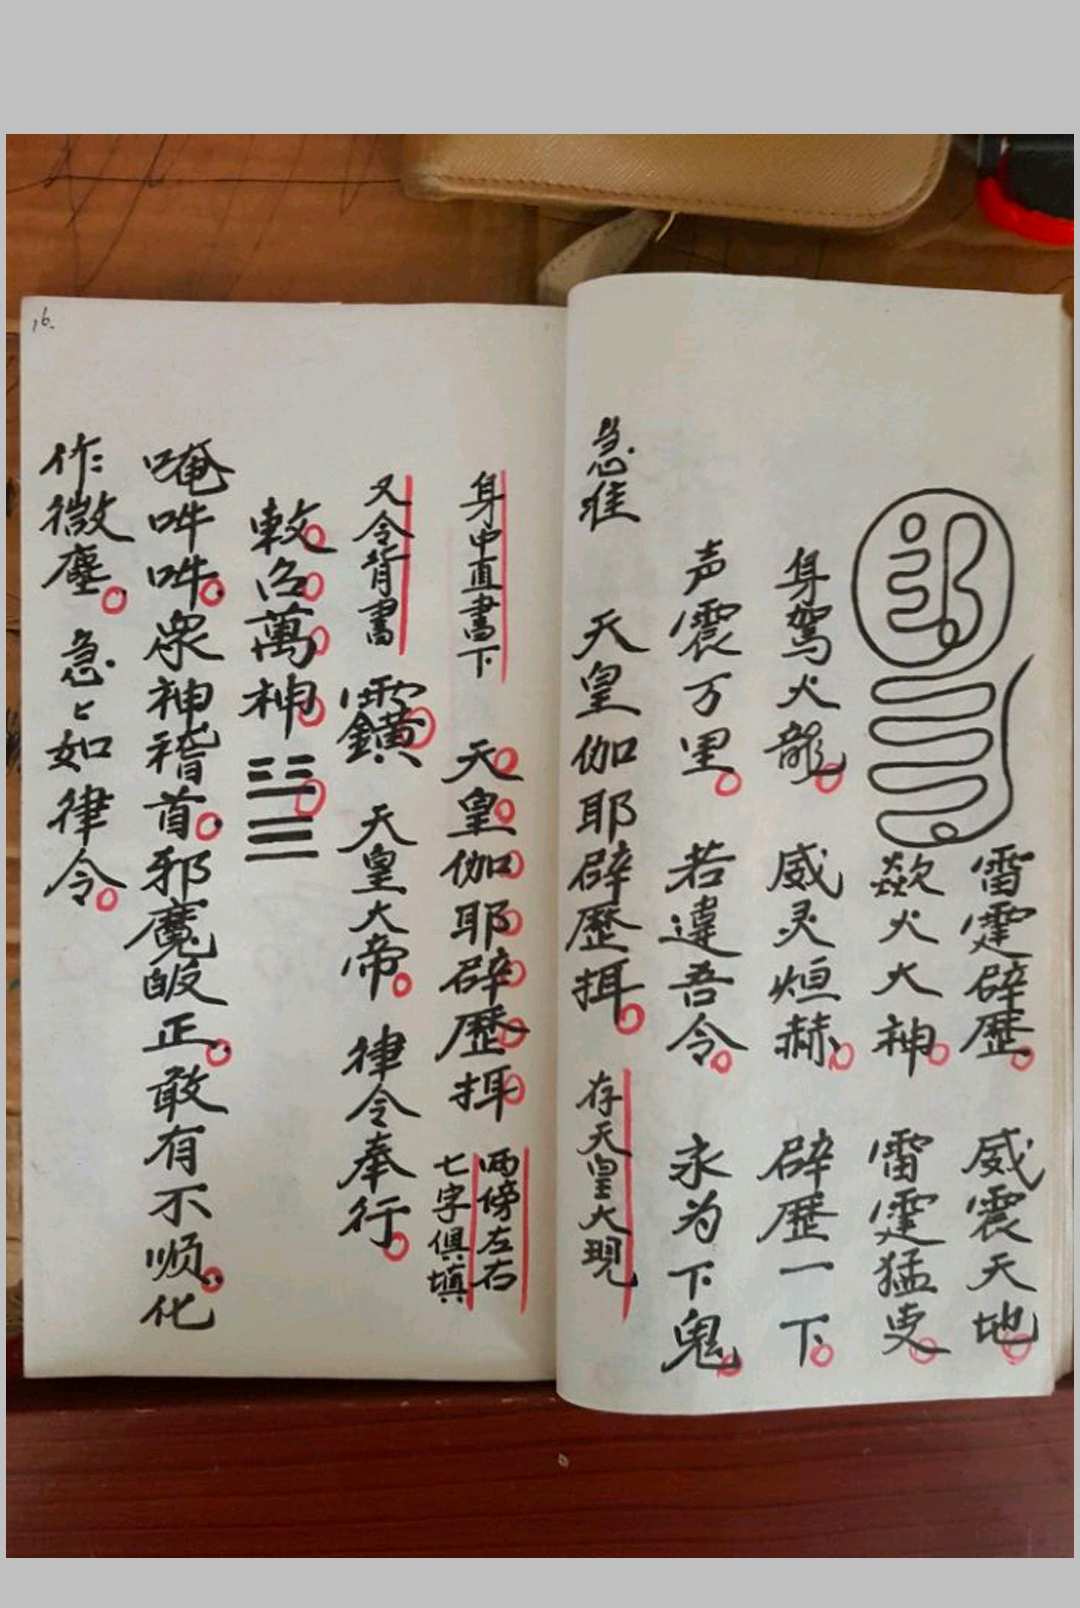 雷霆辟歷 威震天地
焱火大神 雷霆猛吏
身驾火龍 威灵烜赫 辟歷一下
声震万里 若違吾令 永为下鬼
急准 天皇伽耶辟歷揖 存天皇大現
身中直書下 天皇伽耶辟歷揖 兩傍左右
七字俱填
又令背書 天皇大帝 律令奉行
敕召萬神 ☳☰
唵吽吽 眾神稽首 邪魔皈正 敢有不顺 化
作微塵 急々如律令
16.